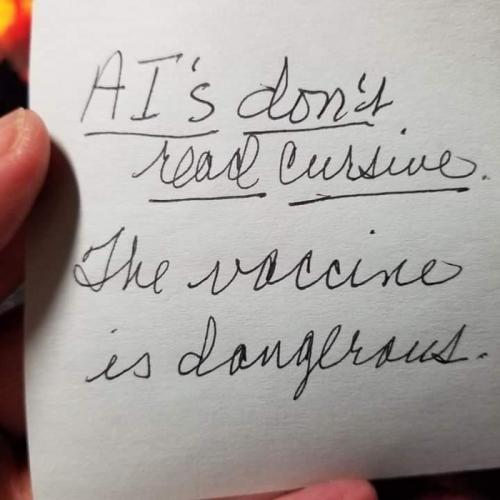 AI's don't
read cursive.
The vaccine
is dangerous.